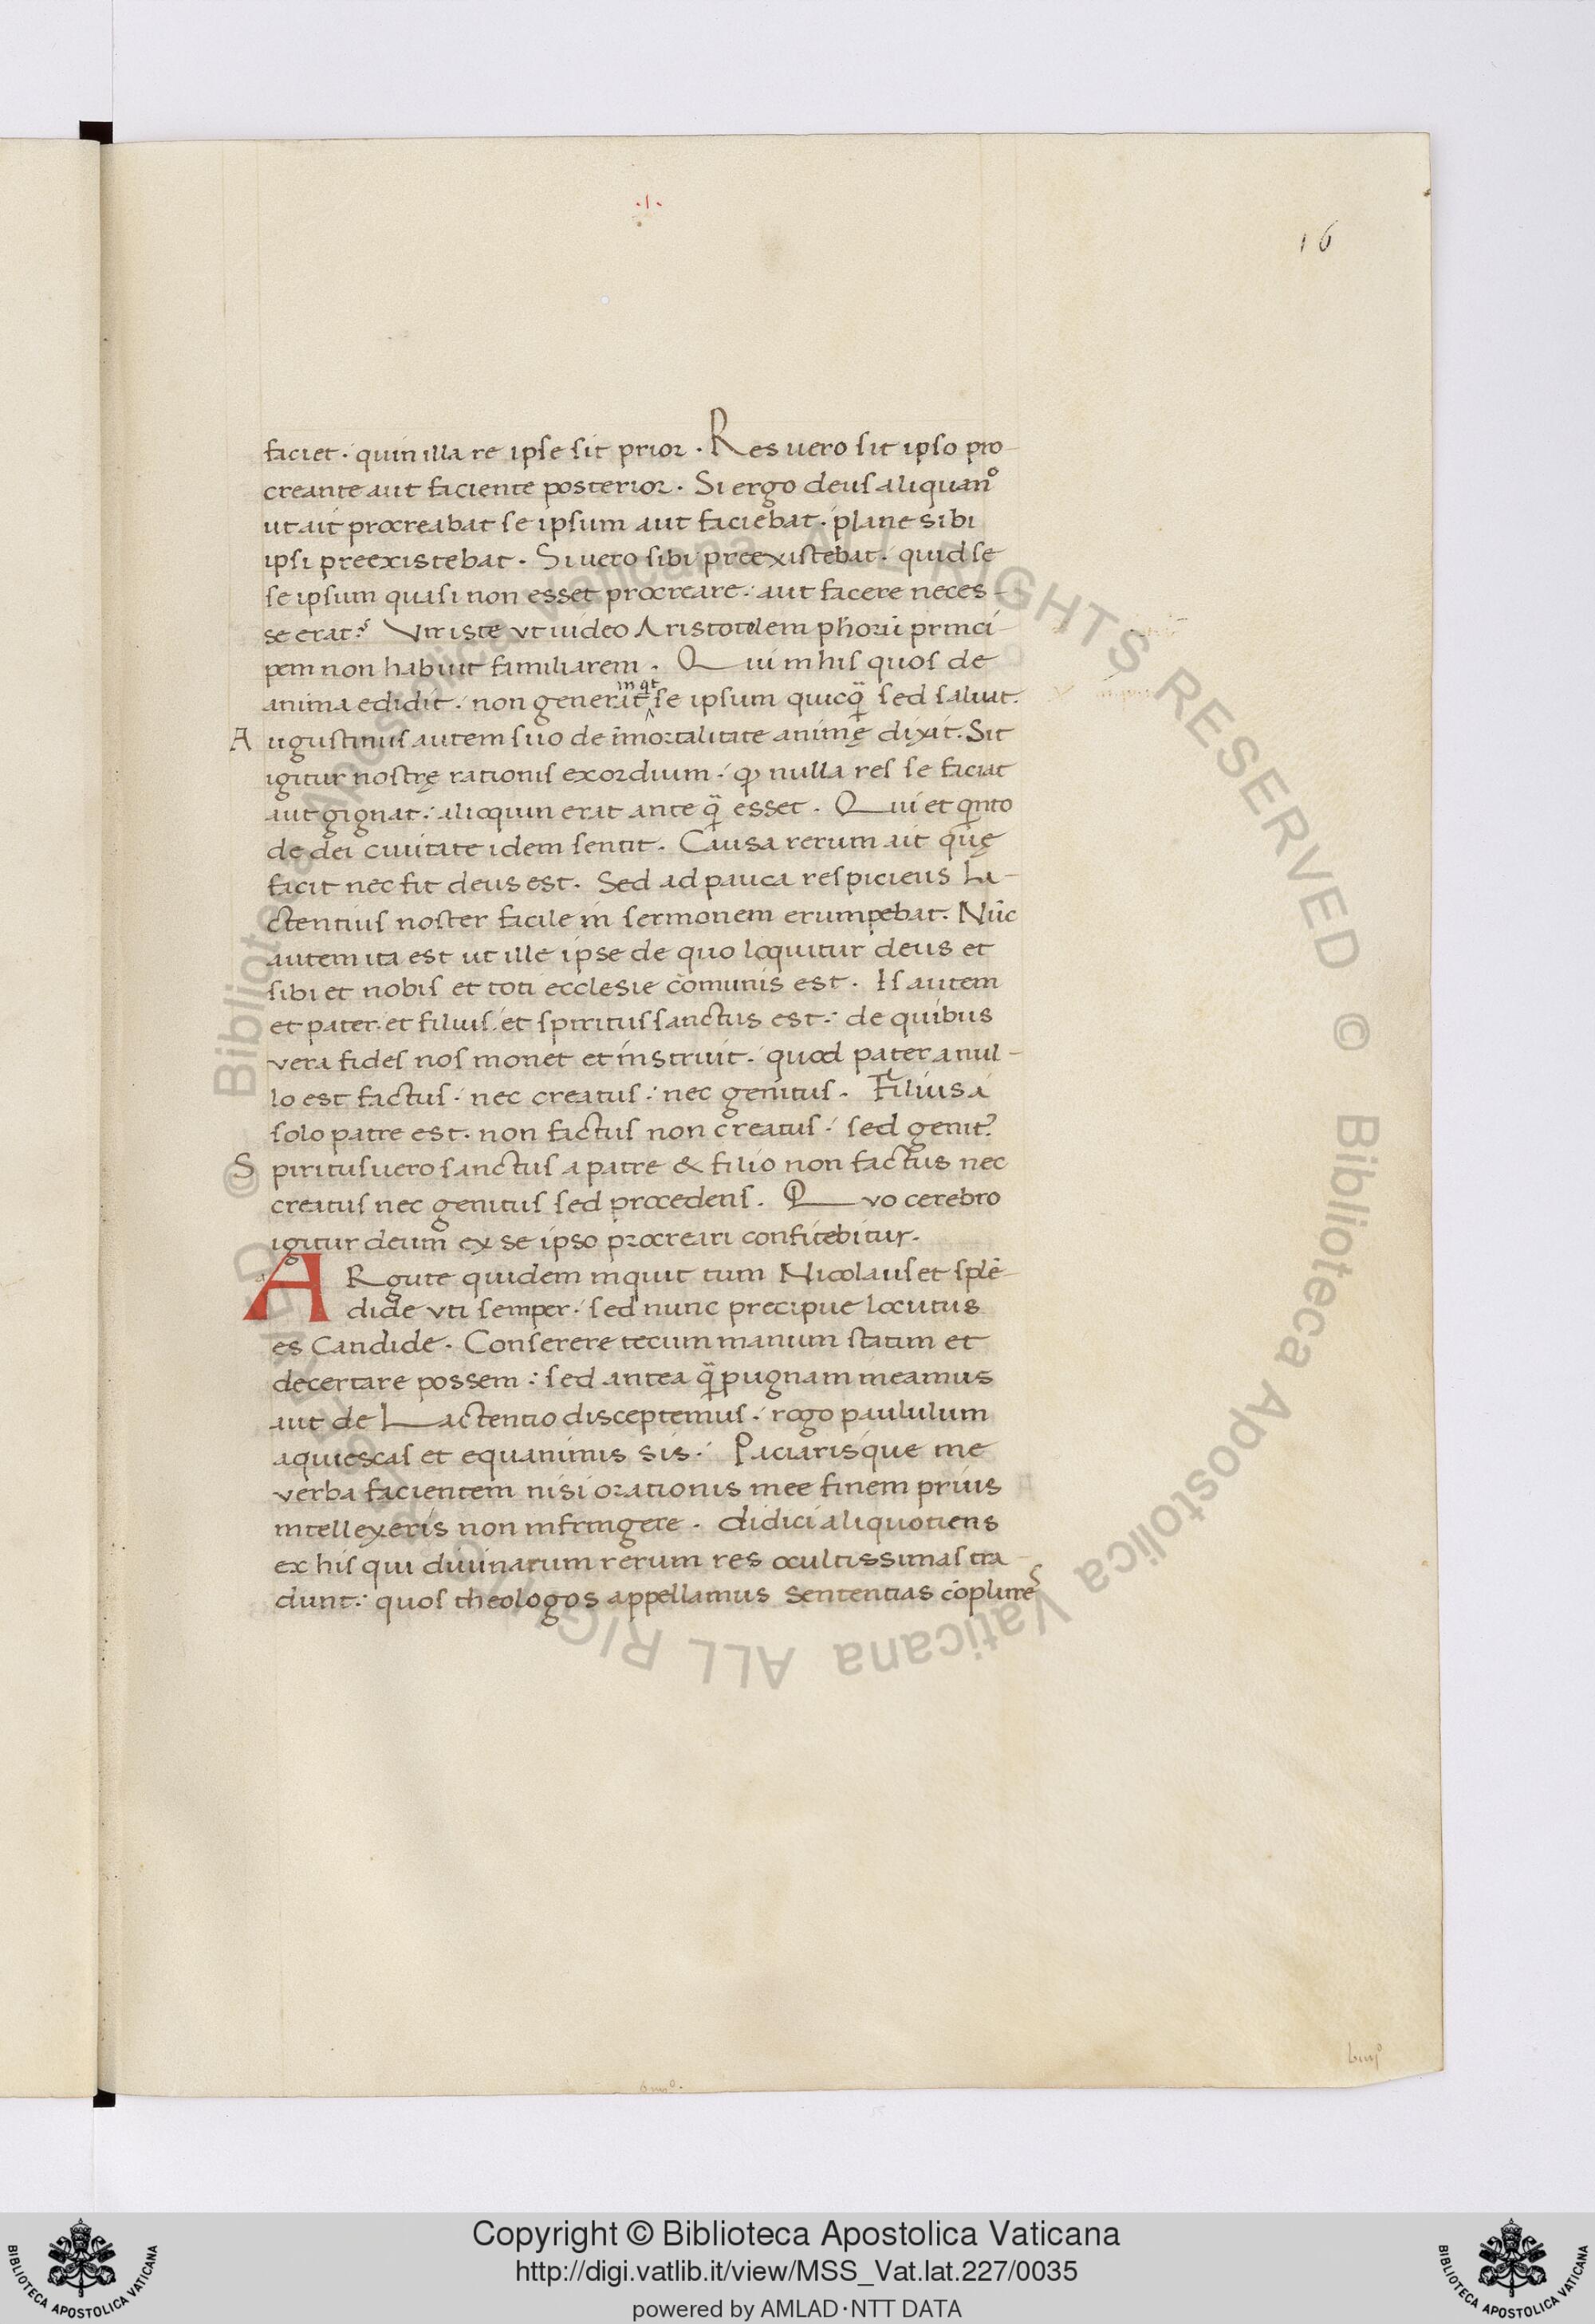 ·I·
16
faciet · quin illa re ipse sit prior · Res uero sit ipso pro-
creante aut faciente posterior · Si ergo deus aliquan̊
ut ait procreabat se ipsum aut faciebat · plane sibi
ipsi preexistebat · Si uero sibi preexistebat · quid se
se ipsum quasi non esset procreare : aut facere neces-
se erat? Vir iste ut uideo Aristotelem ph̄orū princi-
pem non habuit familiarem · Qui in his quos de
anima edidit · non generat inqt se ipsum quicq̄ sed saluat.
Augustinus autem suo de īmortalitate animę dixit. Sit
igitur nostrę rationis exordium · ꝙ nulla res se faciat
aut gignat : alioquin erat ante q̄ esset · Qui et quinto
de dei ciuitate idem sentit. Causa rerum ait quę
facit nec fit deus est. Sed ad pauca respiciens La-
ctentius noster facile in sermonem erumpebat. Nūc
autem ita est ut ille ipse de quo loquitur deus et
sibi et nobis et toti ecclesie cōmunis est · Is autem
et pater et filius et spiritus sanctus est : de quibus
vera fides nos monet et instruit · quod pater a nul-
lo est factus · nec creatus : nec genitus · Filius a
solo patre est · non factus non creatus · sed genit9
Spiritus uero sanctus a patre & filio non factus nec
creatus nec genitus sed procedens · Quo cerebro
igitur deum ex se ipso procreari confitebitur.
ARgute quidem inquit tum Nicolaus et splē-
dide vti semper · sed nunc precipue locutus
es Candide · Conserere tecum manum statim et
decertare possem : sed antea q̄ pugnam ineamus
aut de Lactentio disceptemus · rogo paululum
aquiescas et equanimis sis · Paciarisque me
verba facientem nisi orationis mee finem prius
intellexeris non infringere · didici aliquotiens
ex his qui diuinarum rerum res ocultissimas tra-
dunt : quos theologos appellamus sententias cōplures
© Biblioteca Apostolica Vaticana ALL RIGHTS RESERVED
Copyright © Biblioteca Apostolica Vaticana
http://digi.vatlib.it/view/MSS_Vat.lat.227/0035
powered by AMLAD·NTT DATA
BIBLIOTECA APOSTOLICA VATICANA
BIBLIOTECA APOSTOLICA VATICANA